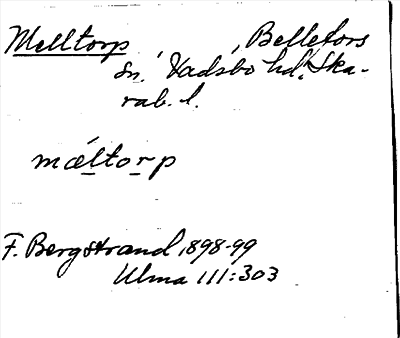 Melltorp, Bellefors
sn, Vadsbo hd, Ska-
rab. l.
mǽltorp
F. Bergstrand 1898-99
Ulma 111:303